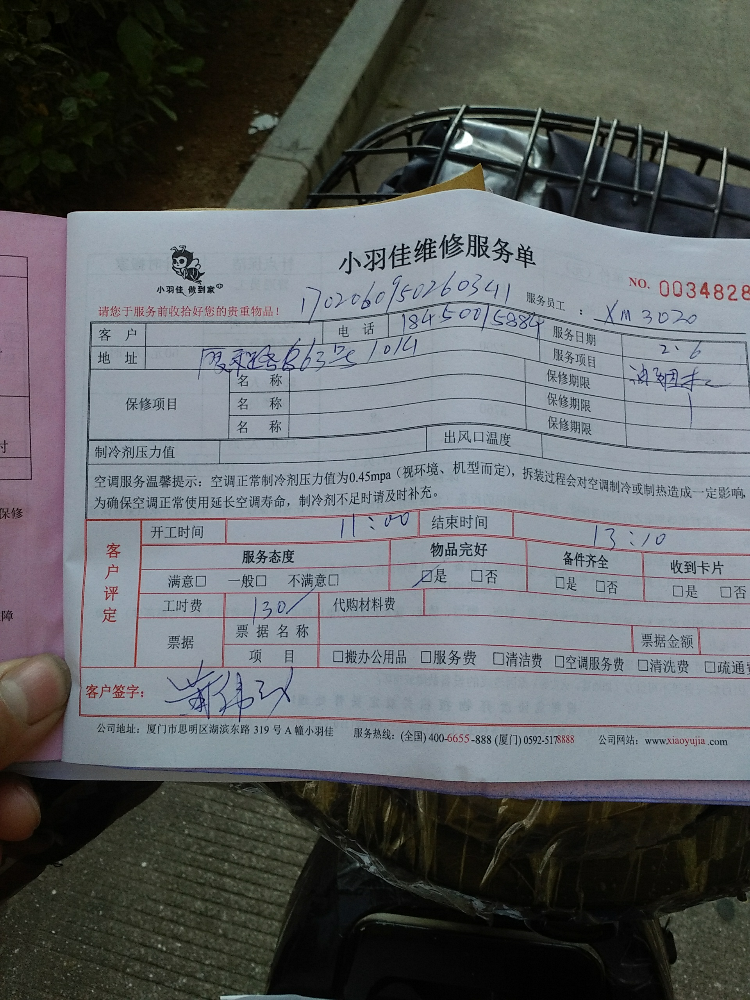 小羽佳维修服务单
小羽佳 做到家
NO. 0034828
请您于服务前收拾好您的贵重物品！
1702060950260341
服务员工： XM3020
客户 电话 18450015884 服务日期 2·6
地址 63号101 服务项目
保修项目 名称 保修期限
名称 保修期限
名称 保修期限
制冷剂压力值 出风口温度
空调服务温馨提示：空调正常制冷剂压力值为0.45mpa（视环境、机型而定），拆装过程会对空调制冷或制热造成一定影响，
为确保空调正常使用延长空调寿命，制冷剂不足时请及时补充。
客户评定
开工时间 11:00 结束时间 13:10
服务态度 物品完好 备件齐全 收到卡片
满意□ 一般□ 不满意□ □是 □否 □是 □否 □是 □否
工时费 130/ 代购材料费
票据 票据名称 票据金额
项目 □搬办公用品 □服务费 □清洁费 □空调服务费 □清洗费 □疏通费
客户签字：
公司地址：厦门市思明区湖滨东路 319 号 A 幢小羽佳 服务热线：(全国) 400-6655-888 (厦门) 0592-5178888 公司网站：www.xiaoyujia.com
时
保修
障